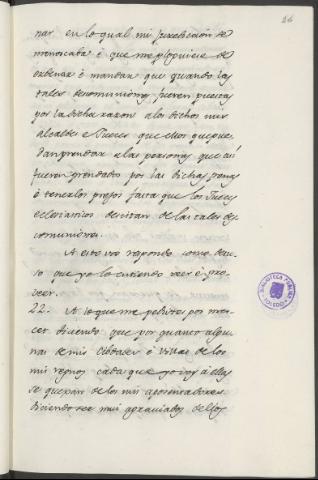 26
nar en lo qual mi jurisdicion se
menoscaba é que me ploguiese de
ordenar é mandar que quando las
tales descomuniones fueren puestas
por la dicha razon a los dichos mis
alcaldes é Jueces que ellos que puedan
prendar e las personas que asi
fueren prendados por las dichas penas
é tenerlos presos fasta que los Jueces
eclesiasticos desistan de las tales des
comuniones.
A esto vos respondo como de suso
que yo lo entiendo veer é pro
veer.
22. A lo que me pedistes por mer
ced diciendo que por quanto algu
nas de mis Cibdades é Villas de los
mis regnos cada que yo vó á ellas
se quejan de los mis aposentadores
diciendo ser mui agraviados dellos
BIBLIOTECA PUBLICA
TOLEDO